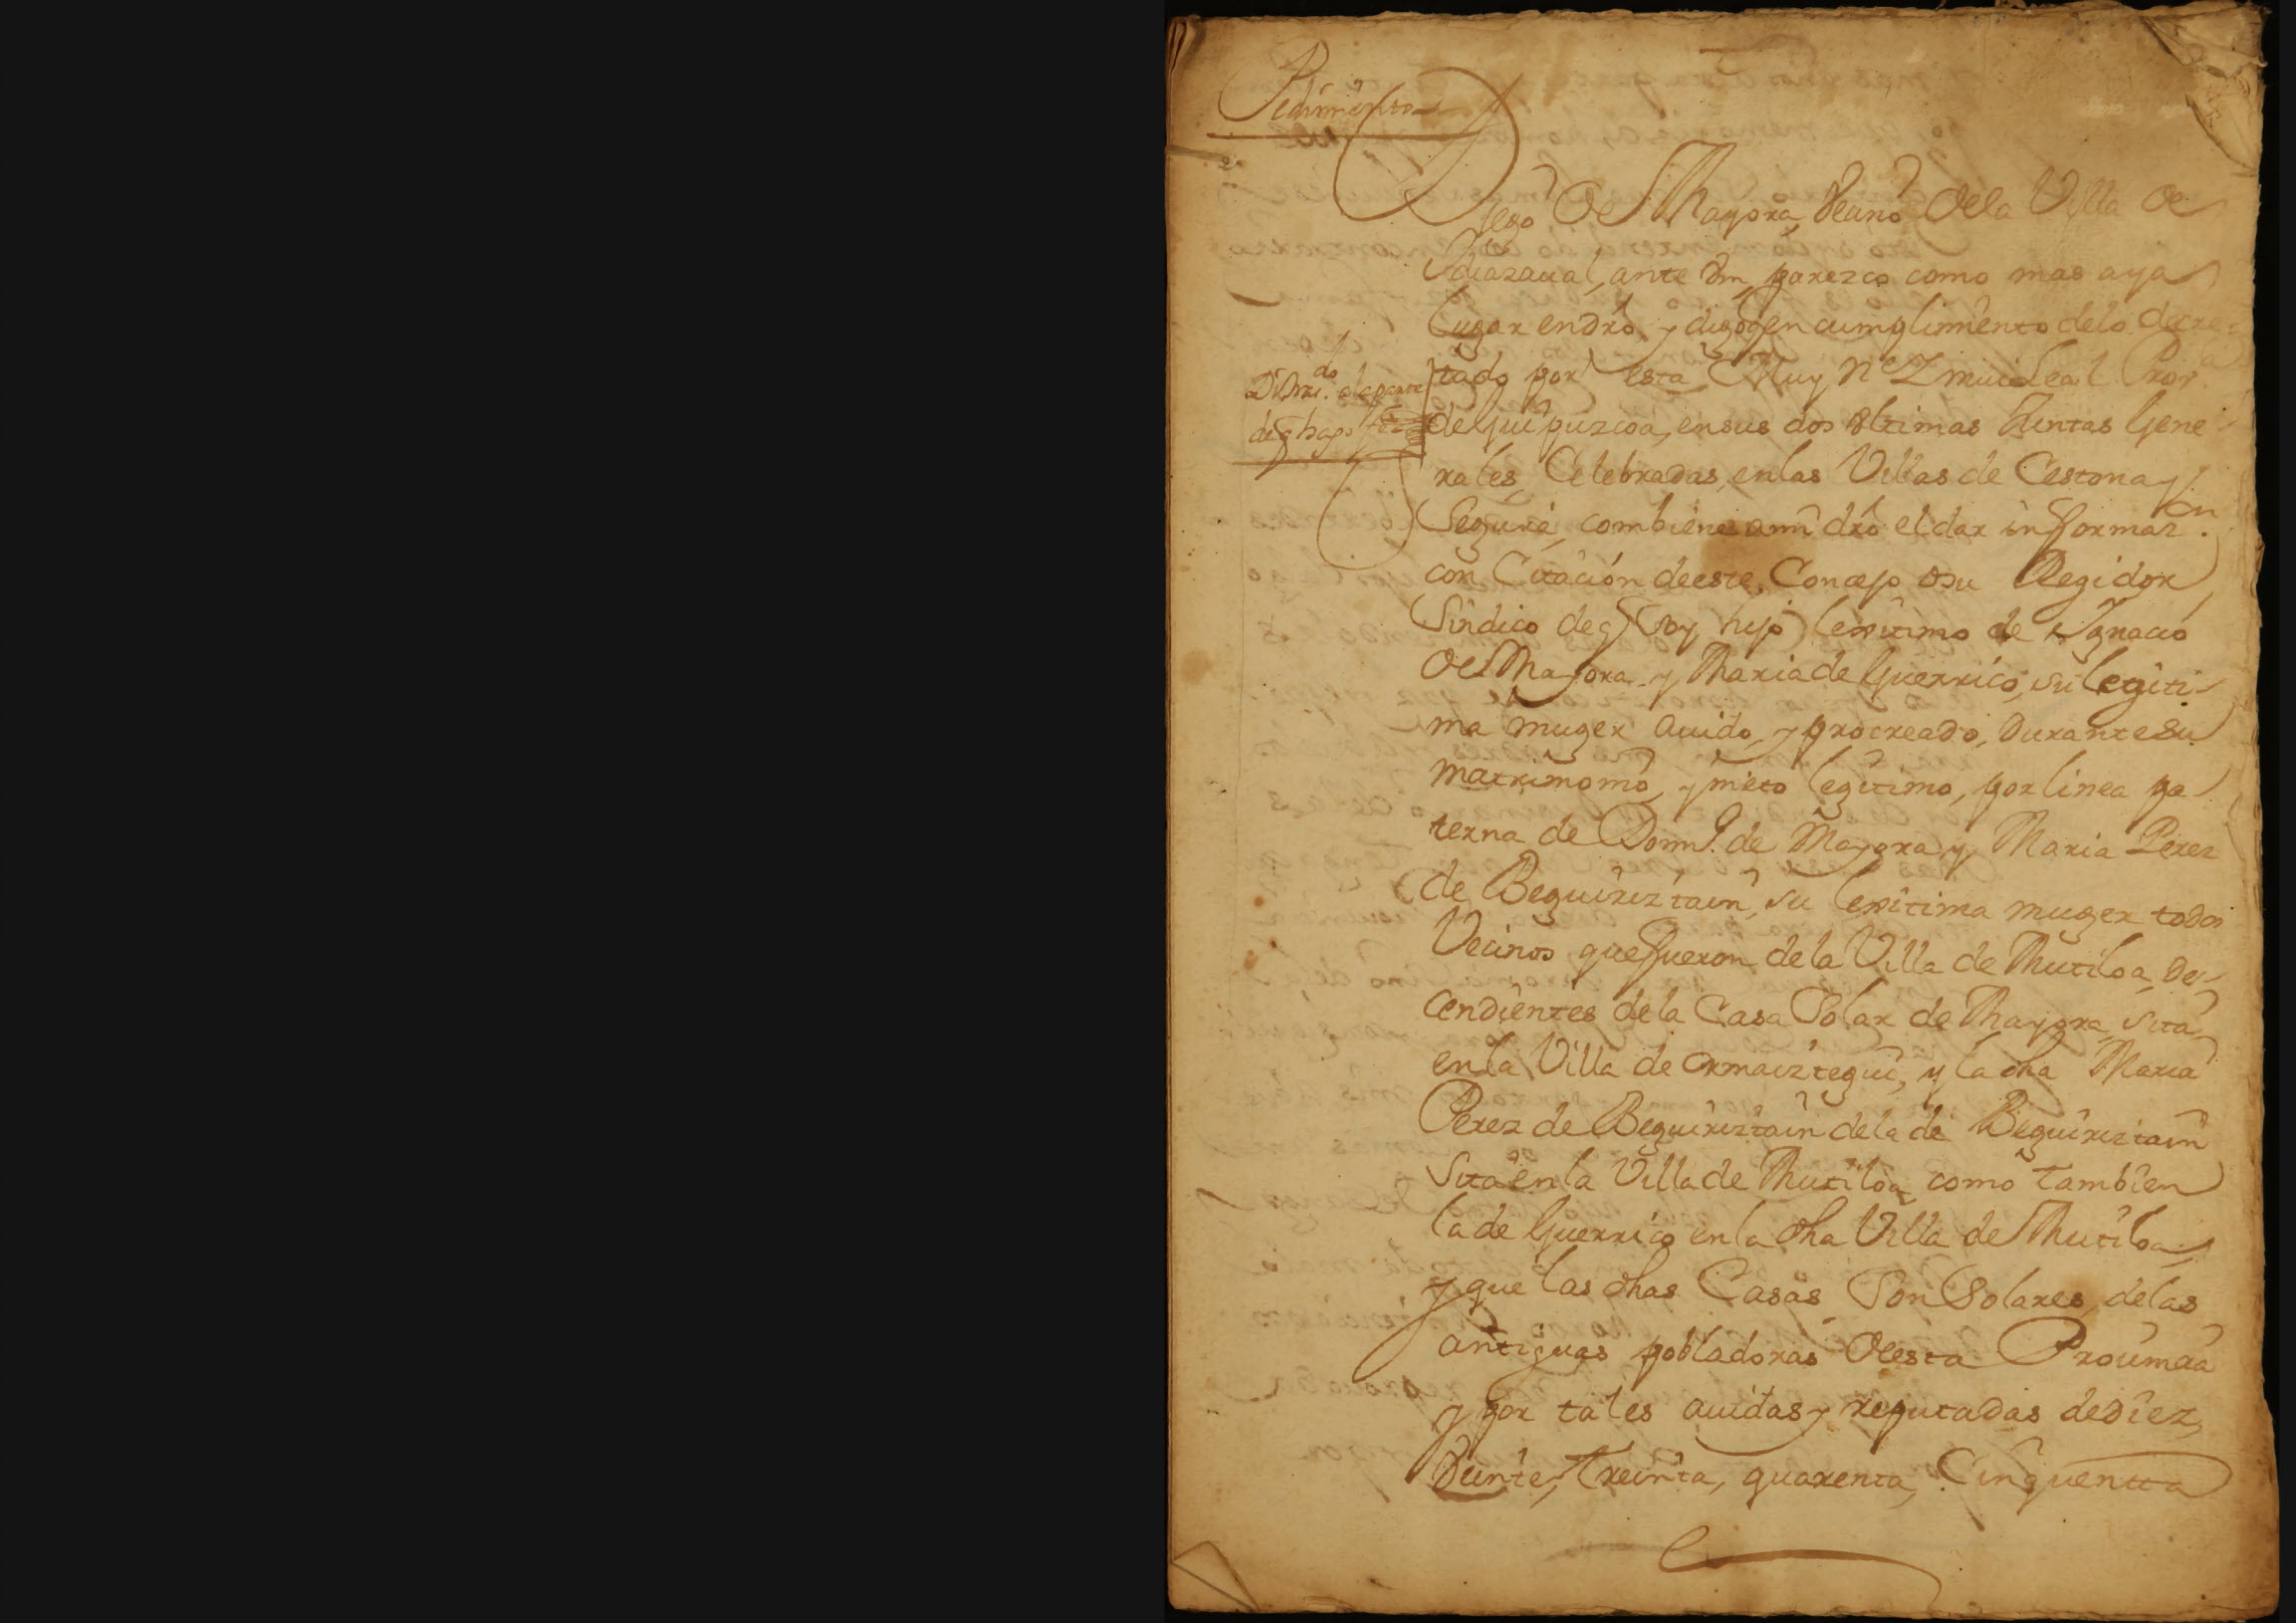 Pedimiento
Diego de Mayora Vecino de la Villa de
Ydiazaual, ante Vm, parezco como mas aya
lugar en dro, y digo q en cumplimiento de lo decre-
tado por esta Muy Ne Y mui Leal Prouª
de Guipuzcoa, en sus dos vltimas Juntas Gene
rales, Celebradas, en las Villas de Cestona y
Segura, combiene a mi dro el dar informaz.on
con Citacion de este Concejo o su Regidor
Sindico de q soy hijo lexitimo de Ygnacio
de Mayora y Maria de Guerrico, su legiti-
ma muger auido, y procreado, Durante su
matrimonio, y nieto legitimo, por linea pa
terna de Domi.º de Mayora y Maria Perez
de Beguiriztain, su lexitima muger todos
Vecinos que fueron de la Villa de Mutiloa, De-
cendientes de la Casa Solar de Mayora, sita
en la Villa de Ormaiztegui, y la dha Maria
Perez de Beguiriztain de la de Beguiriztain
Sita en la Villa de Mutiloa, como tambien
la de Guerrico en la dha Villa de Mutiloa,
y que las dhas Casas Son Solares, de las
antiguas pobladoras desta Prouinzia
y por tales auidas y reputadas de Diez,
Veinte, Treinta, quarenta, Cinquentta
Dio tras.do a la parte
de q hago fee